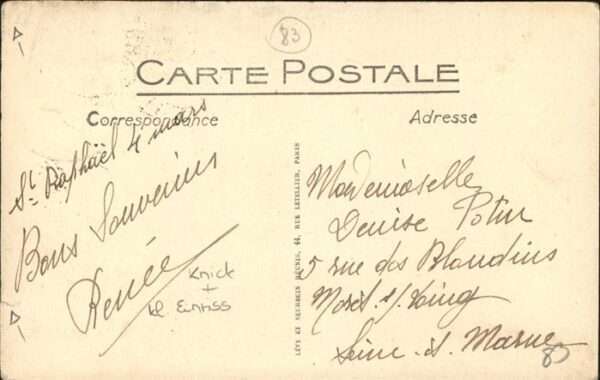 83
CARTE POSTALE
Correspondance
Adresse
St. Raphaël 4 mars
Bons Souvenirs
Renée
Knick
+
LÉVY ET NEURDEIN RÉUNIS, 44, RUE LETELLIER, PARIS
Mademoiselle
Denise Potin
5 rue des Blandins
Moret s/ Loing
Seine et Marne
83